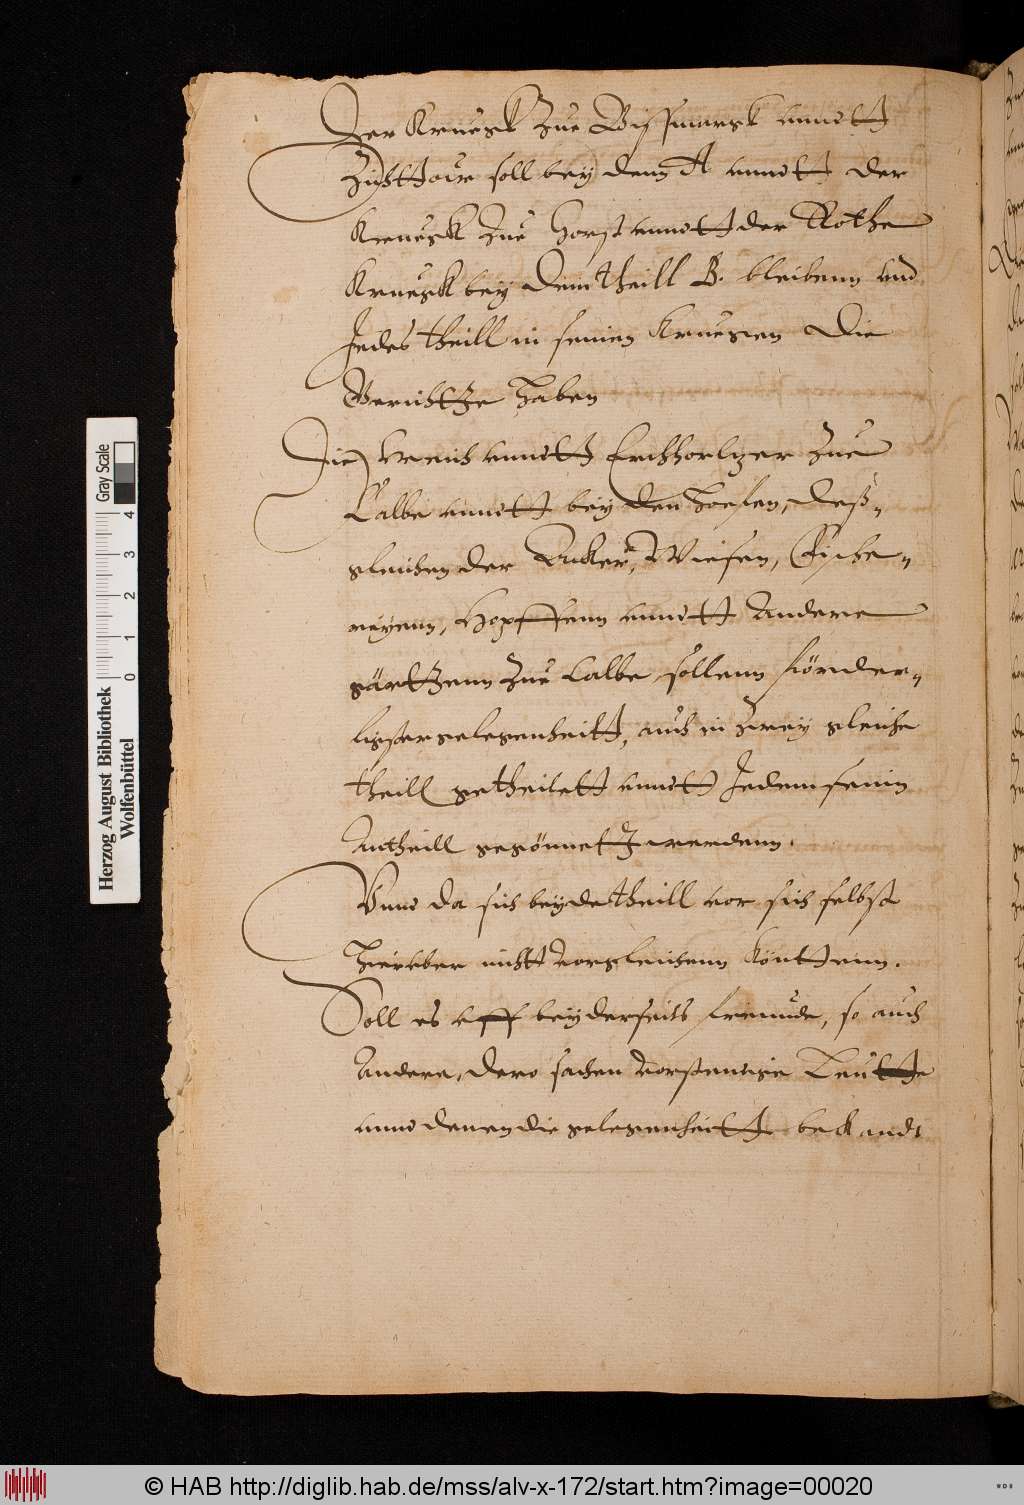 Der Kruegk Zue Wissmargk unndtt
Zichttow soll bey dem A unndtt der
Kruegk Zue Horst unndtt der Rothe
Kruegk bey dem theill B. bleibenn und
Jedes theill in seinen Kruegen die
Gerichtte haben
Die unndtt Zue
Calbe unndtt bey den hoefen, deß„
gleichen der Ancker, Wiesen, Fische„
reyenn, Hopffenn unndtt Andere
gärttenn Zue Calbe, sollenn förder„
ligster gelegenheitt, auch in Zwey gleiche
theill getheilett unndtt Jedem sein
Antheill gegönnett werdenn.
Unnd da sich beyde theill vor sich selbst
hierüber nicht vorgleichenn könttenn.
Soll es uff beyderseits freunde, so auch
Andere, dero sachen vorstendige Leutte
unnd denen die gelegenheitt bekandt
Herzog August Bibliothek
Wolfenbüttel
Gray Scale
0 1 2 3 4
© HAB http://diglib.hab.de/mss/alv-x-172/start.htm?image=00020